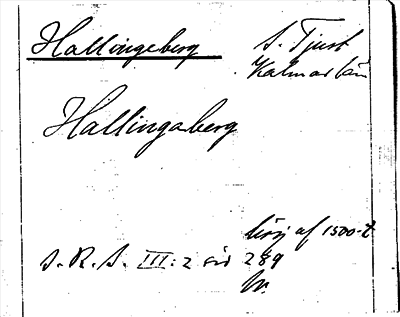 Hallingeberg
S. Tjust
Kalmar län
Hallingaberg
börj af 1500-t
S. R. S. III: 2 sid 289